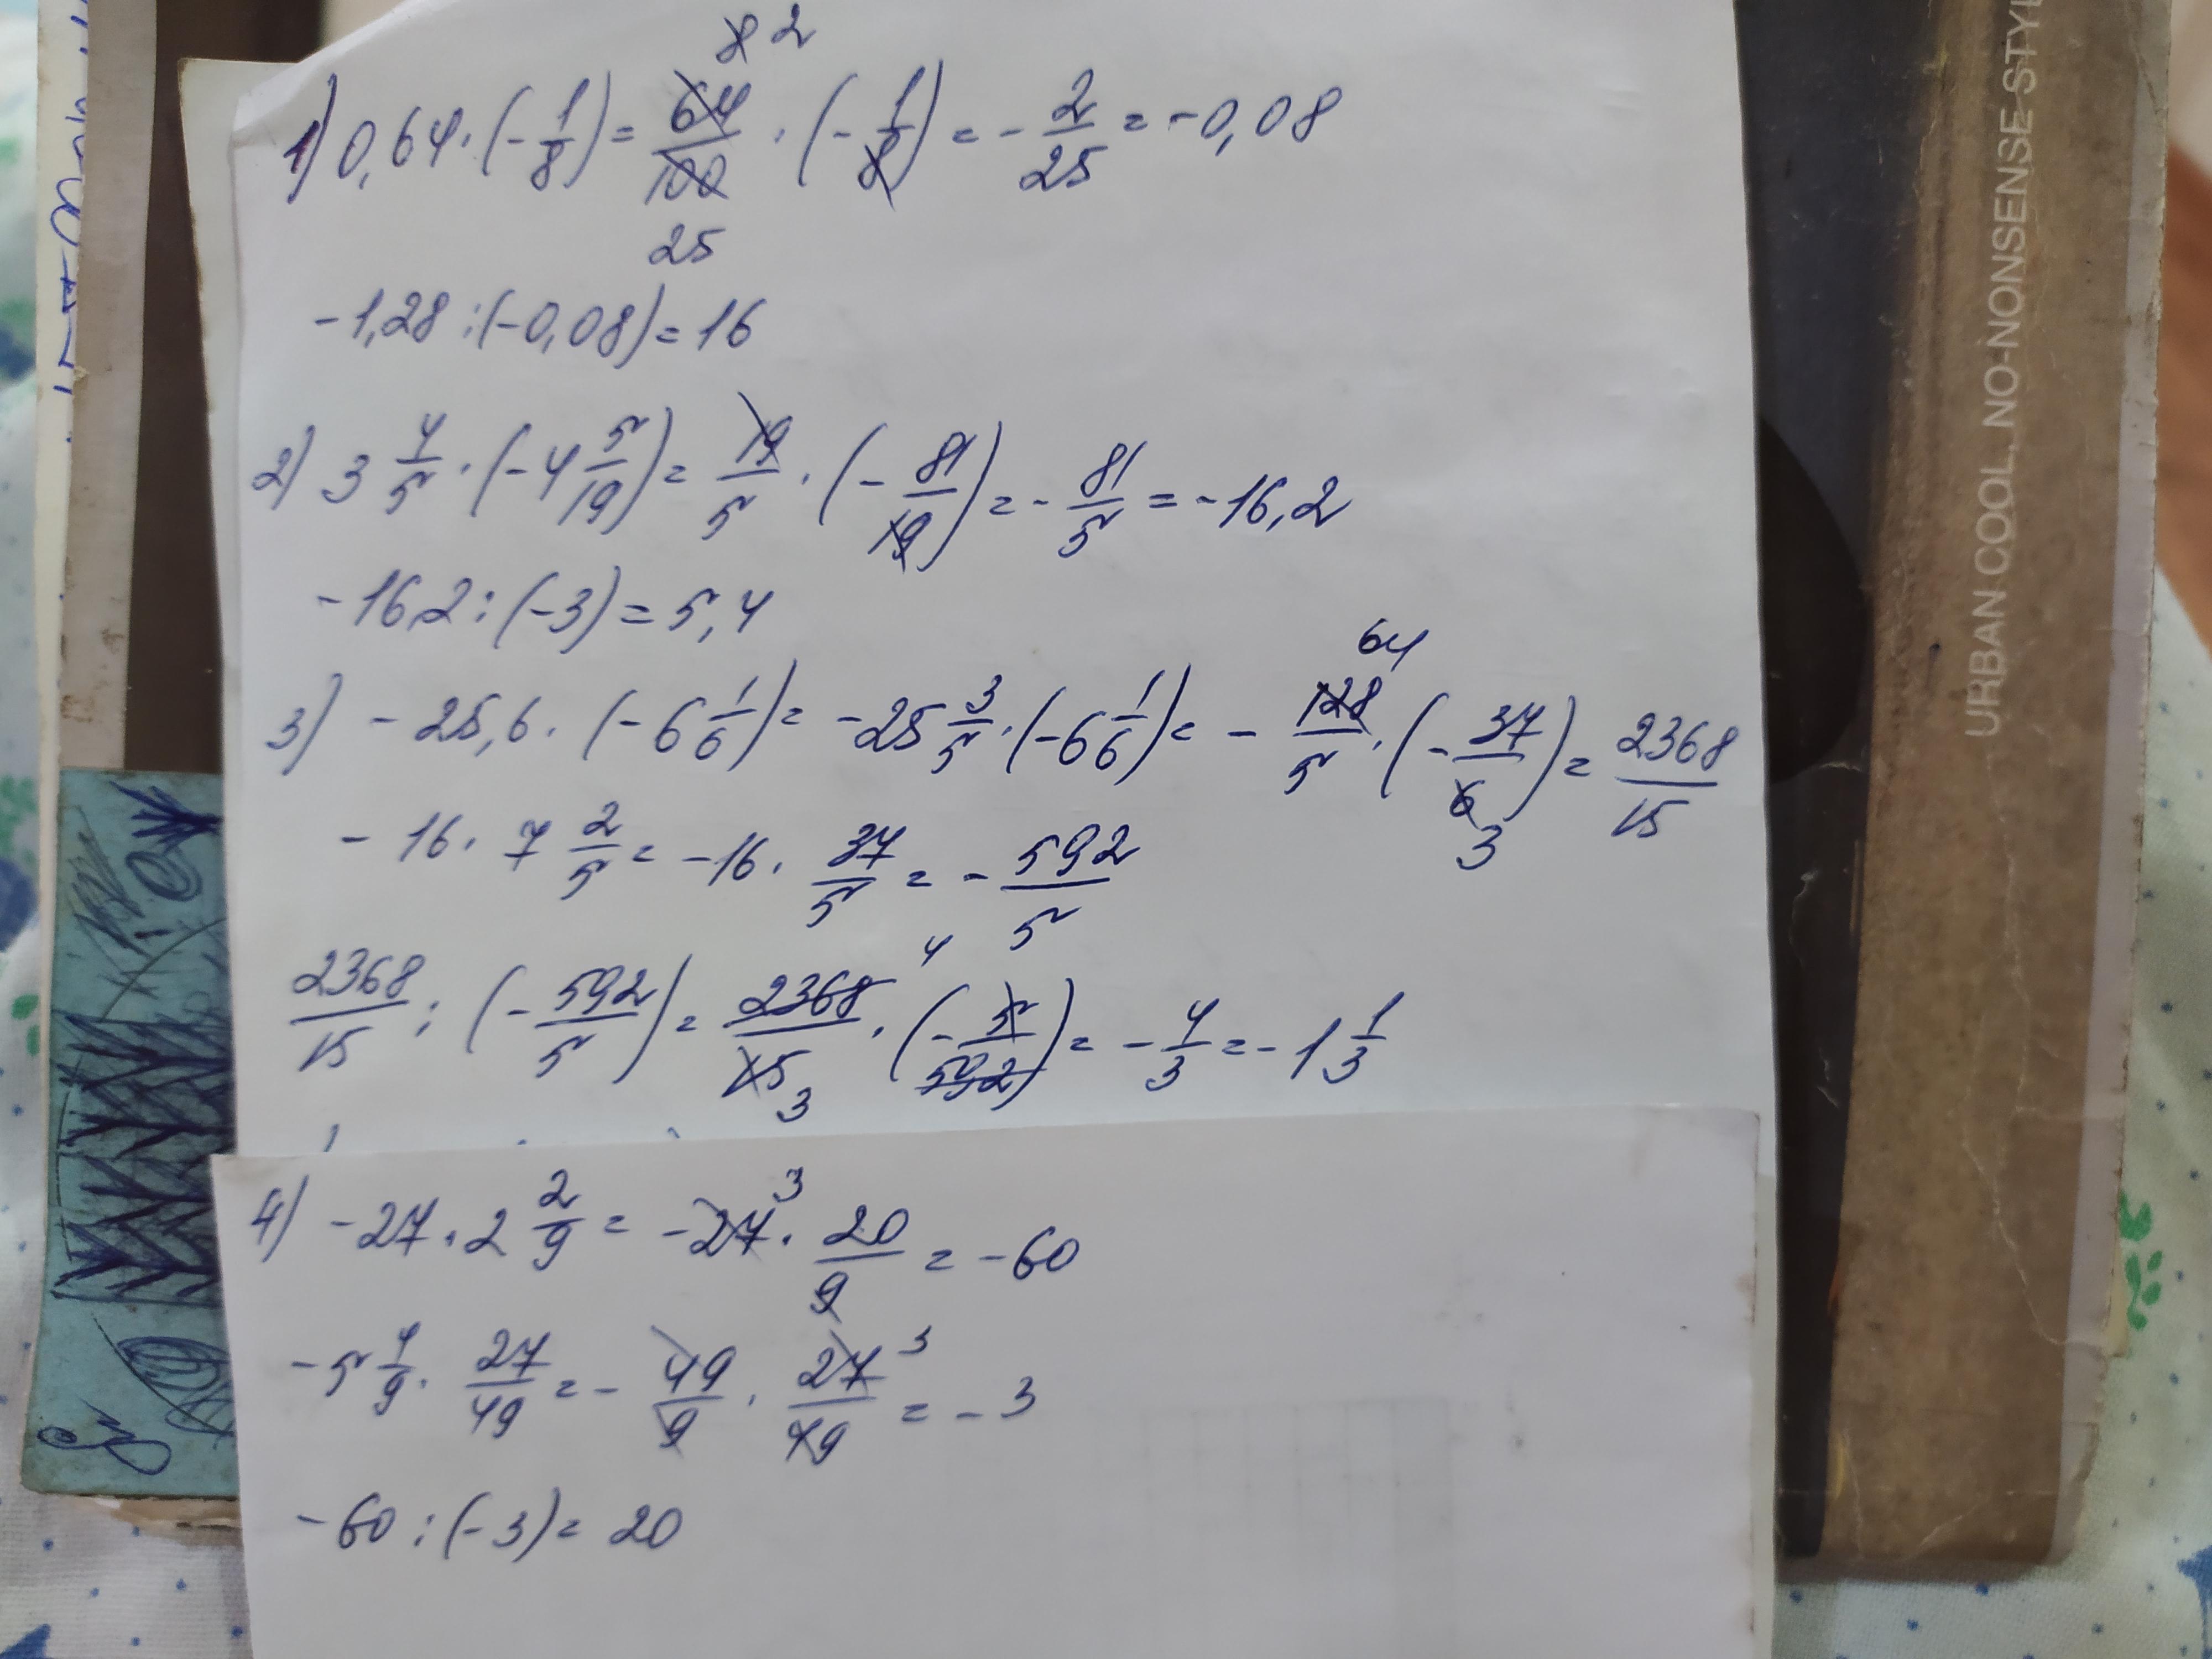 1) 0,64 · (-1/8) = 64/100 · (-1/8) = -2/25 = -0,08
8 2
25
-1,28 : (-0,08) = 16
2) 3 4/5 · (-4 5/19) = 19/5 · (-81/19) = -81/5 = -16,2
-16,2 : (-3) = 5,4
3) -25,6 · (-6 1/6) = -25 3/5 · (-6 1/6) = -128/5 · (-37/6) = 2368/15
64
3
-16 · 7 2/5 = -16 · 37/5 = -592/5
2368/15 : (-592/5) = 2368/15 · (-5/592) = -4/3 = -1 1/3
4
3
4) -27 · 2 2/9 = -27 · 20/9 = -60
3
-5 4/9 · 27/49 = -49/9 · 27/49 = -3
3
-60 : (-3) = 20
URBAN COOL, NO-NONSENSE STYL